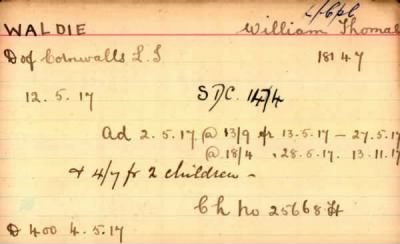 L/Cpl
WALDIE William Thomas
D of Cornwalls L.I 18147
12.5.17 SDC. 14/4
Ad 2.5.17 @ 13/9 fr 13.5.17 – 27.5.17
@ 18/4 " 28.5.17. 13.11.17
& 4/7 fr 2 children –
Ch no 25668 H
D 400 4.5.17